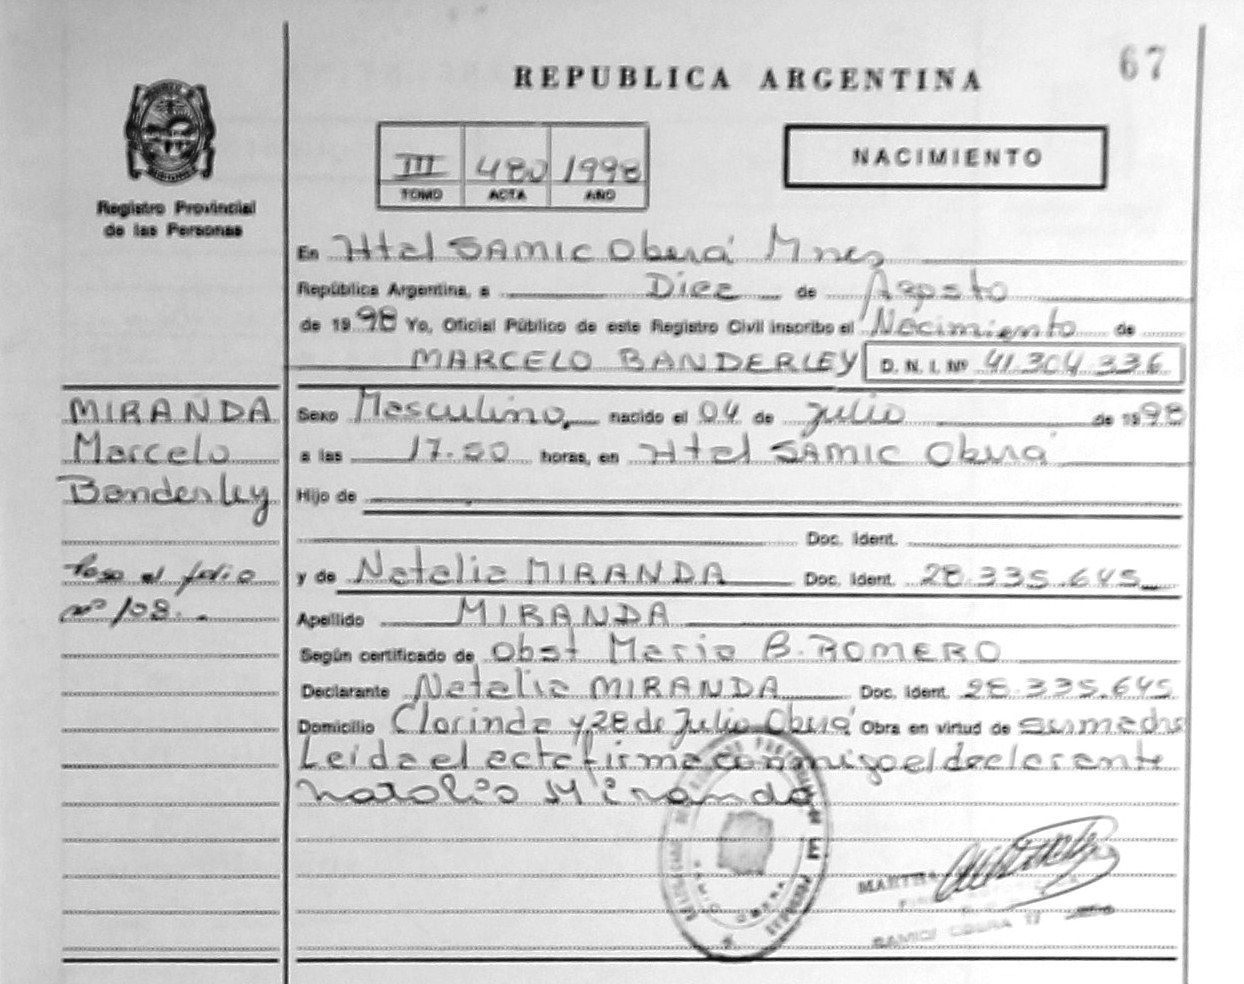 67
REPUBLICA ARGENTINA
III 480 1998
TOMO ACTA AÑO
NACIMIENTO
Registro Provincial
de las Personas
En Htal SAMIC Oberá Mnes
República Argentina, a Diez de Agosto
de 1998 Yo, Oficial Público de este Registro Civil inscribo el Nacimiento de
MARCELO BANDERLEY D. N. I. Nº 41.304.336
MIRANDA
Marcelo
Banderley
Paso al folio
nº 108.
Sexo Masculino, nacido el 04 de julio de 1998
a las 17.50 horas, en Htal SAMIC Oberá
Hijo de
Doc. Ident.
y de Natalia MIRANDA Doc. Ident. 28.335.645
Apellido MIRANDA
Según certificado de Obst Maria B. ROMERO
Declarante Natalia MIRANDA Doc. Ident. 28.335.645
Domicilio Clorinda y 28 de Julio Oberá Obra en virtud de su madre
Leida el acta firma conmigo el declarante
Natalia Miranda
MARTHA
OBERA